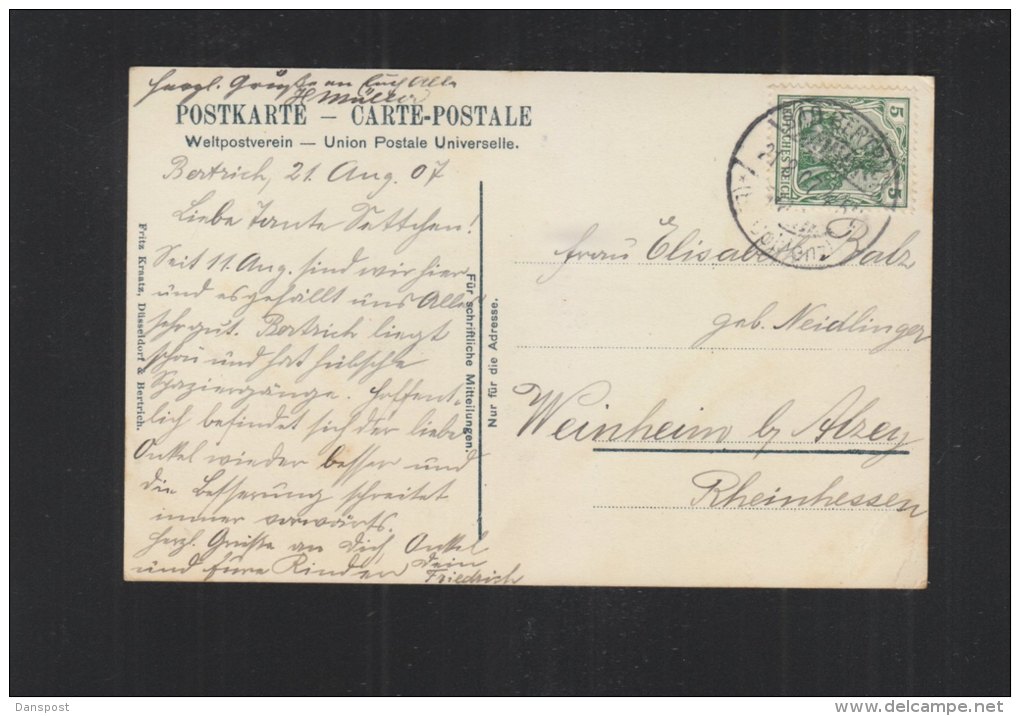 herzl. Grüße an Euch Alle
H Müller
POSTKARTE — CARTE-POSTALE
Weltpostverein — Union Postale Universelle.
Bertrich, 21. Aug. 07
Liebe Tante Settchen!
Seit 11. Aug. sind wir hier
und es gefällt uns Allen
sehr gut. Bertrich liegt
schön und hat hübsche
Spaziergänge. Hoffent-
lich befindet sich der liebe
Onkel wieder besser und
die Besserung schreitet
immer vorwärts.
Herzl. Grüße an Dich Onkel
und Eure Kinder, Dein
Friedrich
Fritz Kraatz, Düsseldorf & Bertrich.
Für schriftliche Mitteilungen
Nur für die Adresse.
5
5
DEUTSCHES REICH
BERTRICH
Frau Elisabeth Balz
geb. Neidlinger
Weinheim b/ Alzey
Rheinhessen
Danspost
delcampe.net